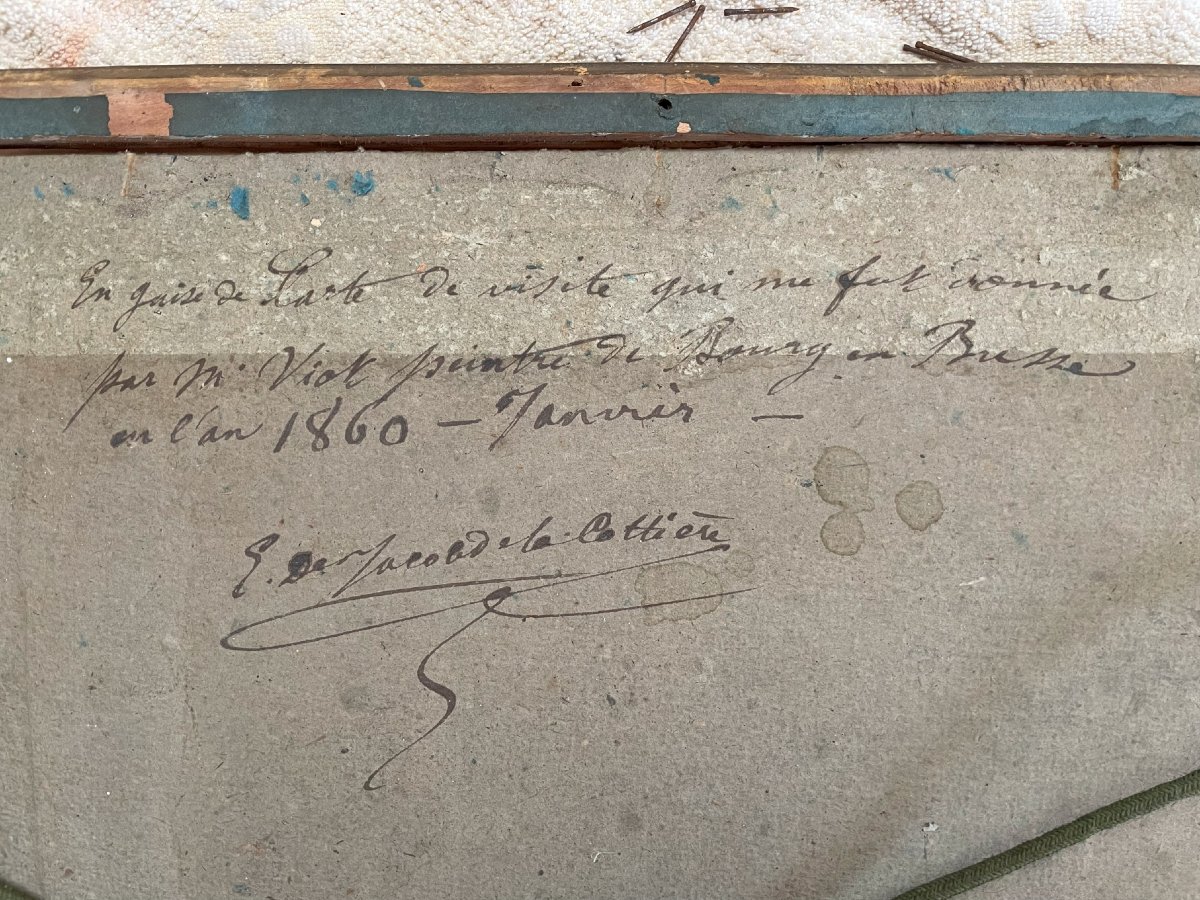 En guise de Carte de visite qui me fut donnée
par Mr Viot peintre de Bourg en Bresse
en l'an 1860 - Janvier -
E. Der Jacob de la Cottière